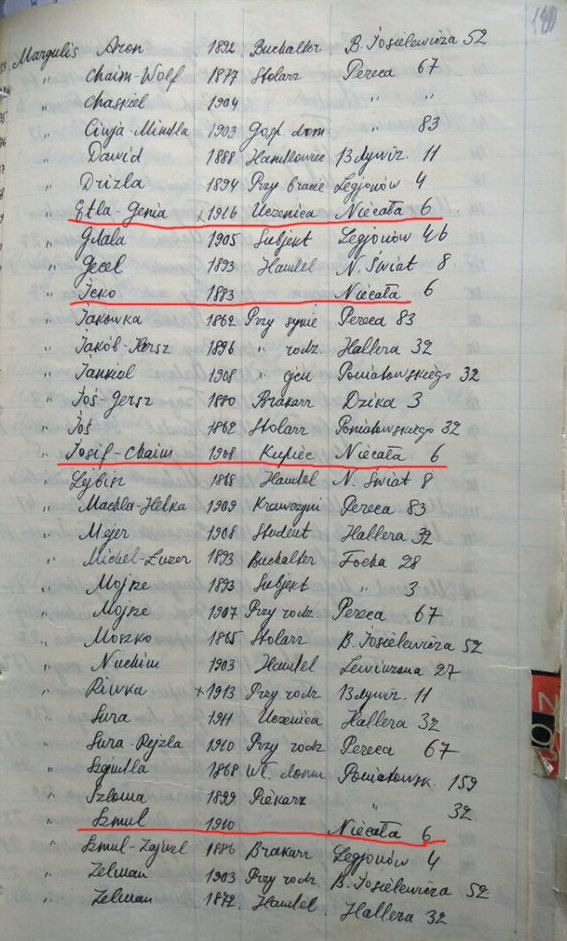 180
Margulis Aron 1892 Buchalter B. Josielewicza 52
„ Chaim-Wolf 1877 Stolarz Pereca 67
„ Chaskiel 1904 „ „
„ Cinja-Mindla 1903 Gosp. dom „ 83
„ Dawid 1888 Handlowiec 13 dywiz. 11
„ Drizla 1894 Przy bracie Legjonów 4
„ Etla-Genia 1916 Uczenica Niecała 6
„ Gdala 1905 Subjekt Legjonów 46
„ Gecel 1893 Handel N. Świat 8
„ Icko 1883 Niecała 6
„ Jakowka 1862 Przy synie Pereca 83
„ Jakób-Hersz 1896 „ rodz. Hallera 32
„ Jankiel 1908 „ ojcu Poniatowskiego 32
„ Joś-Gersz 1880 Brakarz Dzika 3
„ Joś 1862 Stolarz Poniatowskiego 32
„ Josif-Chaim 1908 Kupiec Niecała 6
„ Lejbisz 1868 Handel N. Świat 8
„ Machla-Helka 1909 Krawczyni Pereca 83
„ Mejer 1908 Student Hallera 32
„ Michel-Luzer 1893 Buchalter Focha 28
„ Mojsze 1893 Subjekt „ 3
„ Mojsze 1907 Przy rodz. Pereca 67
„ Moszko 1865 Stolarz B. Josielewicza 52
„ Nuchim 1903 Handel 27
„ Riwka ×1913 Przy rodz 13 dywiz. 11
„ Sura 1911 Uczenica Hallera 32
„ Sura-Rejzla 1910 Przy rodz Pereca 67
„ 1868 Wł. domu Poniatowsk. 159
„ Szloma 1899 Piekarz „ 32
„ Szmul 1910 Niecała 6
„ Szmul-Zajwel 1886 Brakarz Legjonów 4
„ Zelman 1903 Przy rodz. B. Josielewicza 52
„ Zelman 1872 Handel Hallera 32